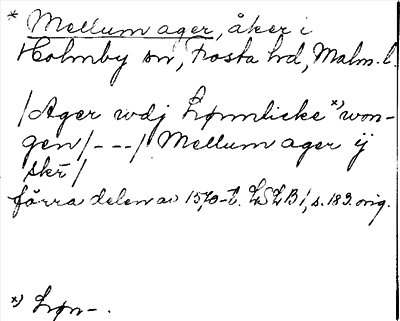 * Mellum ager, åker i
Holmby sn, Frosta hd, Malm. l.
/Ager vdj Lrønnlicke *) won-
gen/---/ Mellum ager ij
skr/
förra delen av 1570-t. LSLB 1, s. 182. orig.
*) Lrøn-.